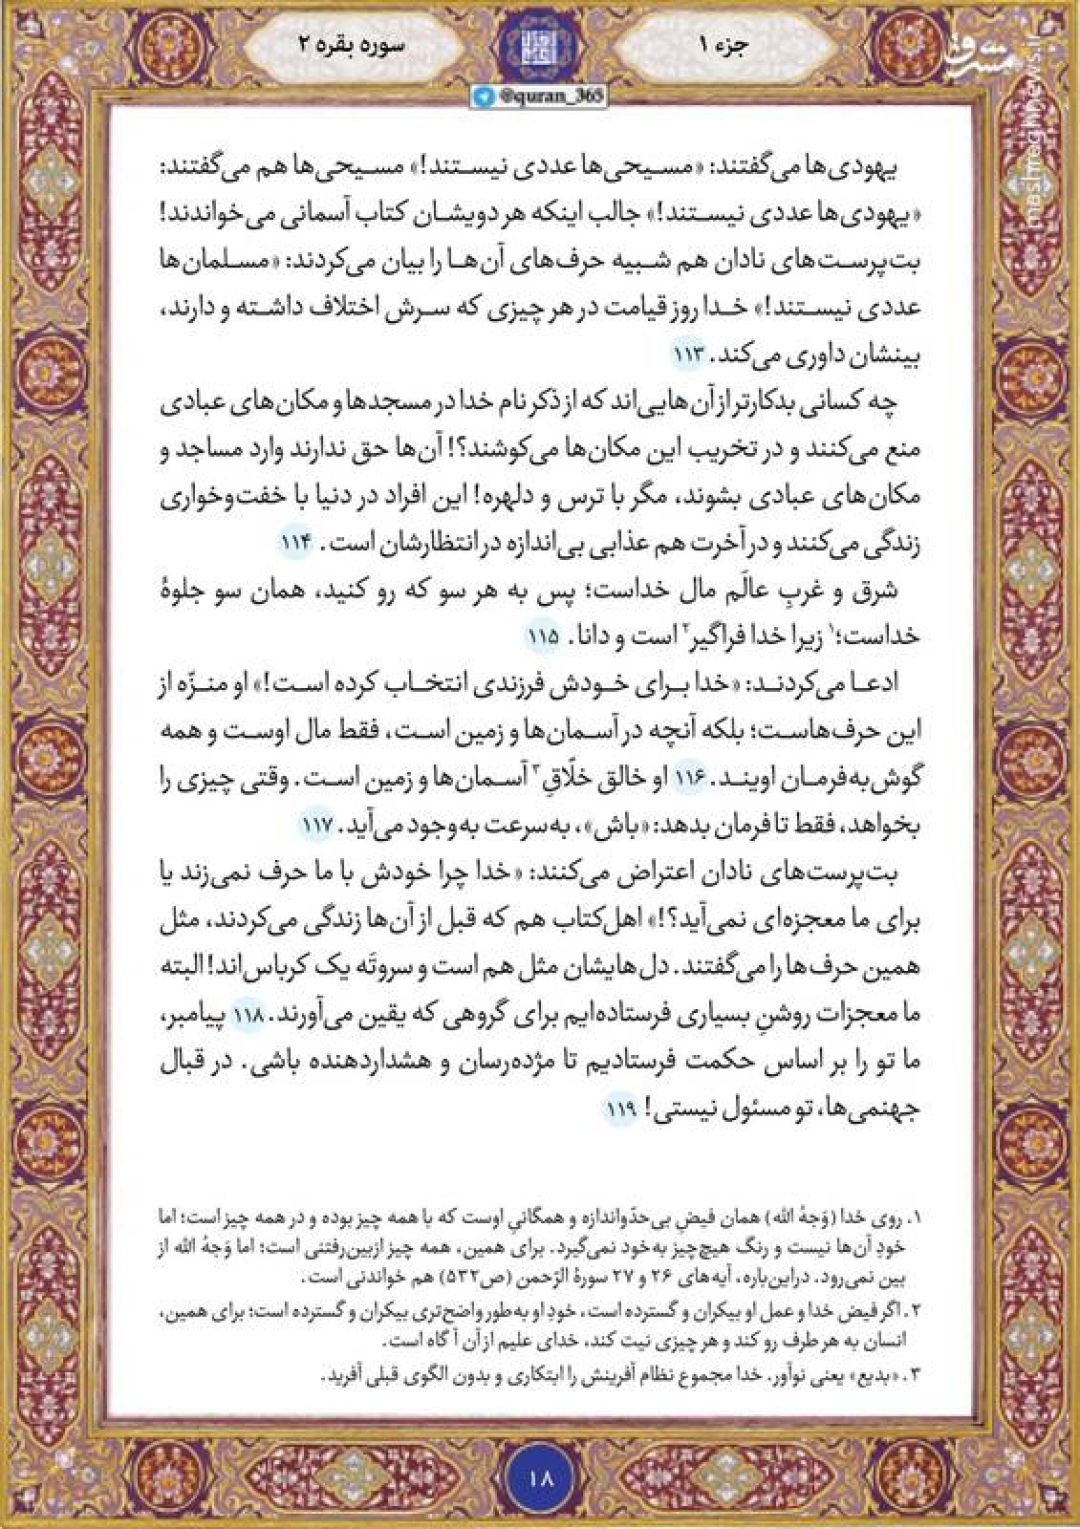 جزء ۱
سوره بقره ۲
مشرق
mashreghnews.ir
@quran_365
یهودی‌ها می‌گفتند: «مسیحی‌ها عددی نیستند!» مسیحی‌ها هم می‌گفتند:
«یهودی‌ها عددی نیستند!» جالب اینکه هر دویشان کتاب آسمانی می‌خواندند!
بت‌پرست‌های نادان هم شبیه حرف‌های آن‌ها را بیان می‌کردند: «مسلمان‌ها
عددی نیستند!» خدا روز قیامت در هر چیزی که سرش اختلاف داشته و دارند،
بینشان داوری می‌کند. ۱۱۳
چه کسانی بدکارتر از آن‌هایی‌اند که از ذکر نام خدا در مسجدها و مکان‌های عبادی
منع می‌کنند و در تخریب این مکان‌ها می‌کوشند؟! آن‌ها حق ندارند وارد مساجد و
مکان‌های عبادی بشوند، مگر با ترس و دلهره! این افراد در دنیا با خفت‌وخواری
زندگی می‌کنند و در آخرت هم عذابی بی‌اندازه در انتظارشان است. ۱۱۴
شرق و غربِ عالَم مال خداست؛ پس به هر سو که رو کنید، همان سو جلوهٔ
خداست؛۱ زیرا خدا فراگیر۲ است و دانا. ۱۱۵
ادعا می‌کردند: «خدا برای خودش فرزندی انتخاب کرده است!» او منزّه از
این حرف‌هاست؛ بلکه آنچه در آسمان‌ها و زمین است، فقط مال اوست و همه
گوش‌به‌فرمان اویند. ۱۱۶ او خالق خلّاقِ۳ آسمان‌ها و زمین است. وقتی چیزی را
بخواهد، فقط تا فرمان بدهد: «باش»، به‌سرعت به‌وجود می‌آید. ۱۱۷
بت‌پرست‌های نادان اعتراض می‌کنند: «خدا چرا خودش با ما حرف نمی‌زند یا
برای ما معجزه‌ای نمی‌آید؟!» اهل‌کتاب هم که قبل از آن‌ها زندگی می‌کردند، مثل
همین حرف‌ها را می‌گفتند. دل‌هایشان مثل هم است و سروتَه یک کرباس‌اند! البته
ما معجزات روشنِ بسیاری فرستاده‌ایم برای گروهی که یقین می‌آورند. ۱۱۸ پیامبر،
ما تو را بر اساس حکمت فرستادیم تا مژده‌رسان و هشداردهنده باشی. در قبال
جهنمی‌ها، تو مسئول نیستی! ۱۱۹
۱. روی خدا (وَجهُ الله) همان فیضِ بی‌حدّواندازه و همگانیِ اوست که با همه چیز بوده و در همه چیز است؛ اما
خودِ آن‌ها نیست و رنگ هیچ‌چیز به‌خود نمی‌گیرد. برای همین، همه چیز ازبین‌رفتنی است؛ اما وَجهُ الله از
بین نمی‌رود. دراین‌باره، آیه‌های ۲۶ و ۲۷ سورهٔ الرّحمن (ص۵۳۲) هم خواندنی است.
۲. اگر فیض خدا و عمل او بیکران و گسترده است، خودِ او به‌طور واضح‌تری بیکران و گسترده است؛ برای همین،
انسان به هر طرف رو کند و هر چیزی نیت کند، خدای علیم از آن آگاه است.
۳. «بدیع» یعنی نوآور. خدا مجموع نظام آفرینش را ابتکاری و بدون الگوی قبلی آفرید.
۱۸